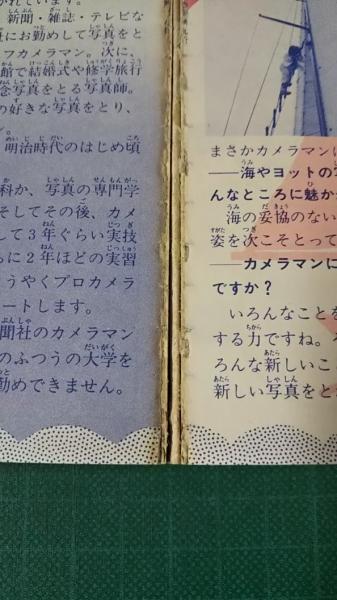 かれています。
新聞・雑誌・テレビな
にお勤めして写真をと
フカメラマン。次に、
館で結婚式や修学旅行
念写真をとる写真師。
の好きな写真をとり、
明治時代のはじめ頃
科か、写真の専門学
そしてその後、カメ
して3年ぐらい実技
らに2年ほどの実習
うやくプロカメラ
ートします。
聞社のカメラマン
のふつうの大学を
勤めできません。
まさかカメラマンに
――海やヨットの
んなところに魅か
海の妥協のない
姿を次こそとって
――カメラマンに
ですか?
いろんなことを
する力ですね。
ろんな新しいこ
新しい写真をと